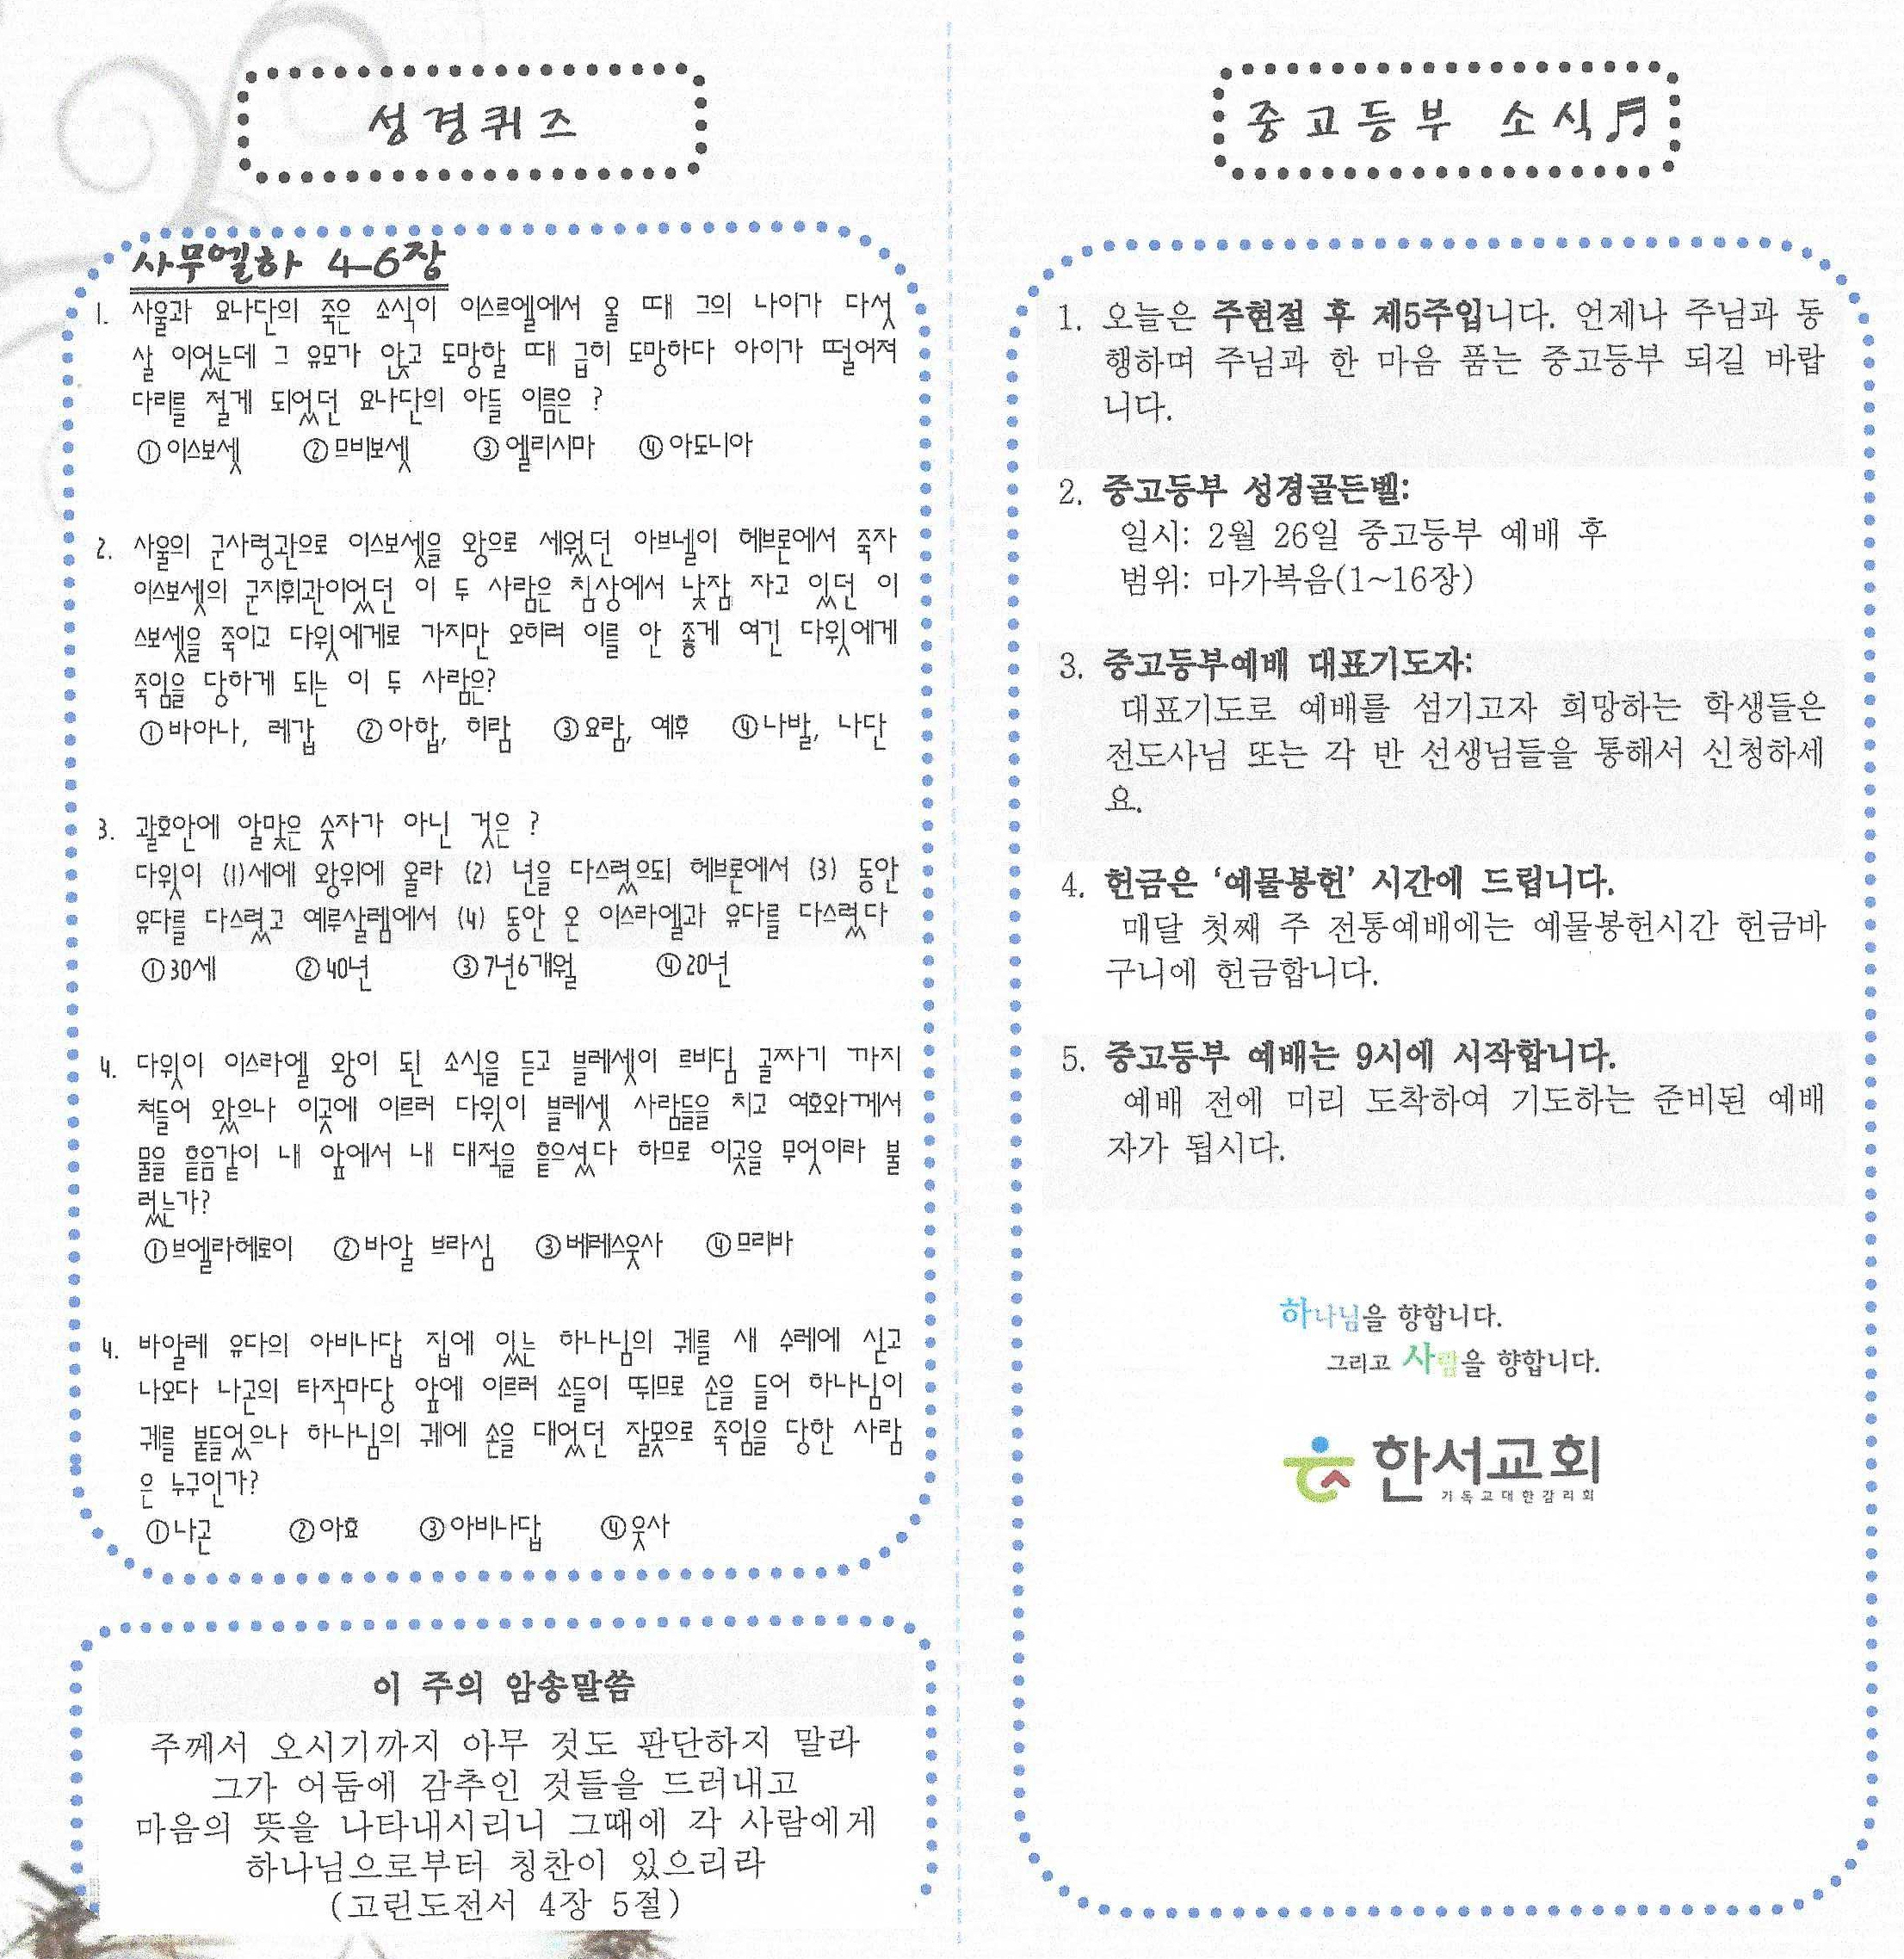 성경퀴즈
사무엘하 4-6장
1. 사울과 요나단의 죽은 소식이 이스르엘에서 올 때 그의 나이가 다섯
살 이었는데 그 유모가 안고 도망할 때 급히 도망하다 아이가 떨어져
다리를 절게 되었던 요나단의 아들 이름은 ?
①이스보셋 ②므비보셋 ③엘리시마 ④아도니아
2. 사울의 군사령관으로 이스보셋을 왕으로 세웠던 아브넬이 헤브론에서 죽자
이스보셋의 군지휘관이었던 이 두 사람은 침상에서 낮잠 자고 있던 이
스보셋을 죽이고 다윗에게로 가지만 오히려 이를 안 좋게 여긴 다윗에게
죽임을 당하게 되는 이 두 사람은?
①바아나, 레갑 ②아합, 히람 ③요람, 예후 ④나발, 나단
3. 괄호안에 알맞은 숫자가 아닌 것은 ?
다윗이 (1)세에 왕위에 올라 (2) 년을 다스렸으되 헤브론에서 (3) 동안
유다를 다스렸고 예루살렘에서 (4) 동안 온 이스라엘과 유다를 다스렸다
①30세 ②40년 ③7년6개월 ④20년
4. 다윗이 이스라엘 왕이 된 소식을 듣고 블레셋이 르비딤 골짜기 까지
쳐들어 왔으나 이곳에 이르러 다윗이 블레셋 사람들을 치고 여호와께서
물을 흩음같이 내 앞에서 내 대적을 흩으셨다 하므로 이곳을 무엇이라 불
렀는가?
①브엘라헤로이 ②바알 브라심 ③베레스웃사 ④므리바
4. 바알레 유다의 아비나답 집에 있는 하나님의 궤를 새 수레에 싣고
나오다 나곤의 타작마당 앞에 이르러 소들이 뛰므로 손을 들어 하나님이
궤를 붙들었으나 하나님의 궤에 손을 대었던 잘못으로 죽임을 당한 사람
은 누구인가?
①나곤 ②아효 ③아비나답 ④웃사
이 주의 암송말씀
주께서 오시기까지 아무 것도 판단하지 말라
그가 어둠에 감추인 것들을 드러내고
마음의 뜻을 나타내시리니 그때에 각 사람에게
하나님으로부터 칭찬이 있으리라
(고린도전서 4장 5절)
중고등부 소식♬
1. 오늘은 주현절 후 제5주입니다. 언제나 주님과 동
행하며 주님과 한 마음 품는 중고등부 되길 바랍
니다.
2. 중고등부 성경골든벨:
일시: 2월 26일 중고등부 예배 후
범위: 마가복음(1~16장)
3. 중고등부예배 대표기도자:
대표기도로 예배를 섬기고자 희망하는 학생들은
전도사님 또는 각 반 선생님들을 통해서 신청하세
요.
4. 헌금은 ‘예물봉헌’ 시간에 드립니다.
매달 첫째 주 전통예배에는 예물봉헌시간 헌금바
구니에 헌금합니다.
5. 중고등부 예배는 9시에 시작합니다.
예배 전에 미리 도착하여 기도하는 준비된 예배
자가 됩시다.
하나님을 향합니다.
그리고 사람을 향합니다.
한서교회
기독교대한감리회